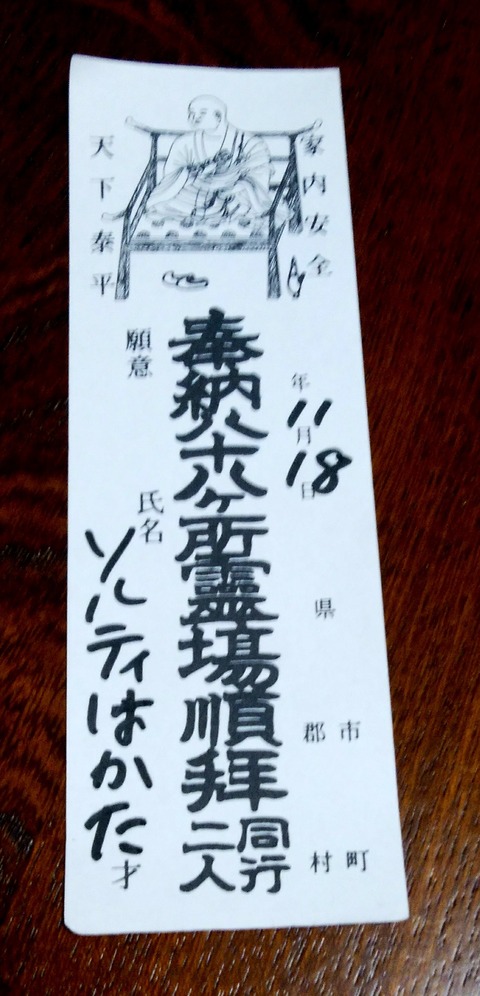 家内安全
年11月18日
県
市
郡
町
村
奉納八十八ヶ所霊場順拝
同行
二人
天下泰平
願意
氏名
ソルティはかた
才